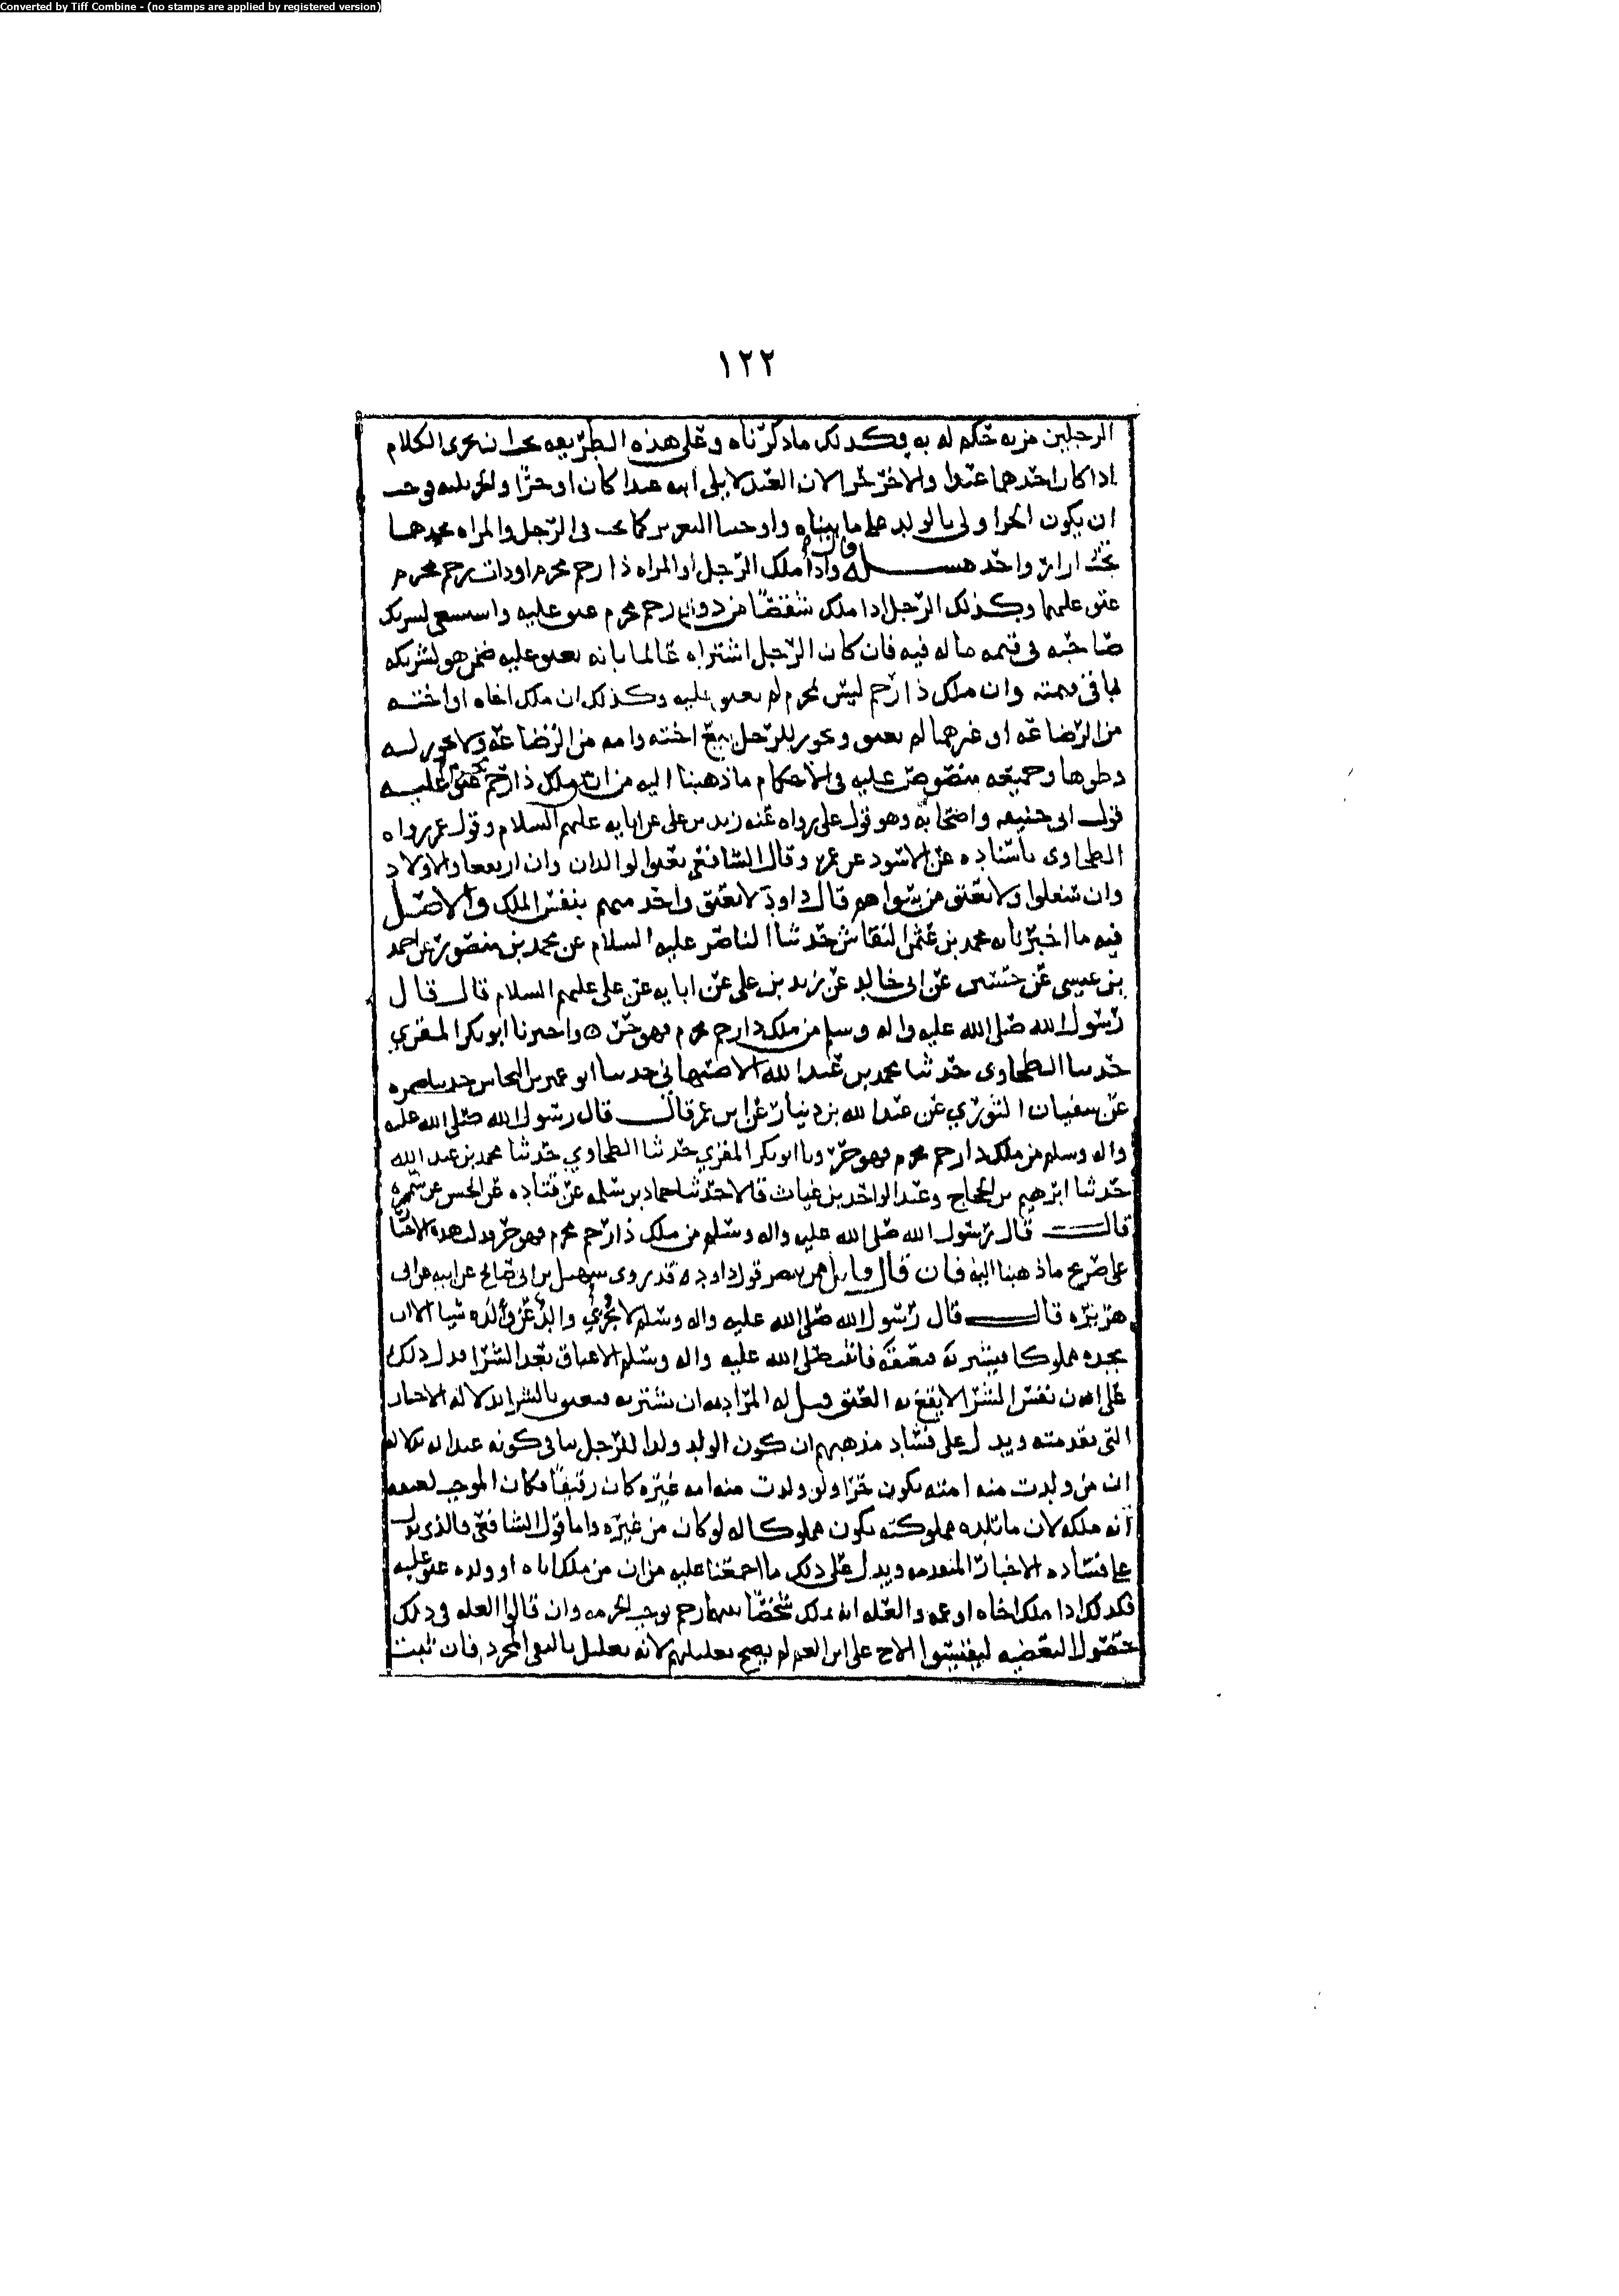 Converted by Tiff Combine - (no stamps are applied by registered version)
١٢٢
الرجلين مزيه حكم له به وكذلك ما ذكرناه وعلى هذه الطريقه يجرى الكلام
اذا كان احدهما عبدا والاخر حرا لان العبد لا يلى ابنه عبدا كان او حرا
ان يكون الحر اولى بالولد على ما بيناه الرجل والمراه
واحد مسله قال واذا ملك الرجل او المراه ذا رحم محرم او ذات رحم محرم
عتق عليهما وكذلك الرجل اذا ملك شقصا من ذوى رحم محرم عتق عليه واستسعى لشريك
صاحبه فى قيمه ما له فيه فان كان الرجل اشتراه عالما بانه يعتق عليه ضمن هو لشريكه
باقى قيمته وان ملك ذا رحم ليس بمحرم لم يعتق عليه وكذلك ان ملك اخاه او اخته
من الرضاعه او غيرهما لم يعتق ويجوز للرجل بيع اخته وامه من الرضاعه ولا يجوز له
وطوها وجميعه منصوص عليه فى الاحكام ما ذهبنا اليه من ان من ملك ذا رحم محرم عتق عليه
قول ابى حنيفه واصحابه وهو قول على رواه عنه زيد بن على عن ابايه عليهم السلام وقول عمر رواه
الطحاوى باسناده عن الاسود عن عمر وقال الشافعى يعتق الوالدان وان ارتفعا والاولاد
وان سفلوا ولا يعتق من سواهم قال داود لا يعتق واحد منهم بنفس الملك والاصل
فيه ما اخبرنا به محمد بن عثمن النقاش حدثنا الناصر عليه السلام عن محمد بن منصور عن احمد
بن عيسى عن حسين عن ابى خالد عن زيد بن على عن ابايه عن على عليهم السلام قال قال
رسول الله صلى الله عليه واله وسلم من ملك ذا رحم محرم فهو حر واخبرنا ابو بكر المقري
حدثنا الطحاوى حدثنا محمد بن عبد الله الاصبهاني حدثنا ابو عمير بن النحاس حدثنا ضمره
عن سفيان الثوري عن عبد الله بن دينار عن ابن عمر قال قال رسول الله صلى الله عليه
واله وسلم من ملك ذا رحم محرم فهو حر ونا ابو بكر المقري حدثنا الطحاوي حدثنا محمد بن عبد الله
حدثنا ابرهيم بن الحجاج وعبد الواحد بن غياث قالا حدثنا حماد بن سلمه عن قتاده عن الحسن عن سمره
قال قال رسول الله صلى الله عليه واله وسلم من ملك ذا رحم محرم فهو حر فدلت هذه الاخبار
على صريح ما ذهبنا اليه فان قال قايل ممن ينصر قول داود قد روى سهيل بن ابى صالح عن ابيه عن ابى
هريره قال قال رسول الله صلى الله عليه واله وسلم لا يجزي والد عن ولده شيا الا ان
يجده مملوكا فيشتريه فيعتقه فاثبت صلى الله عليه واله وسلم الاعتاق بعد الشرا فدل ذلك
على ان نفس الشرا لا يقع به العتق قيل له المراد به ان يشتريه فيعتق بالشرا بدلاله الاخبار
التى تقدمته ويدل على فساد مذهبهم ان كون الولد ولدا للرجل ينافى كونه عبدا له بدلاله
ان من ولدت منه امته يكون حرا ولو ولدت منه امه غيره كان رقيقا فكان الموجب لعتقه
انه ملكه لان ما تلده مملوكته يكون مملوكا له لو كان من غيره واما قول الشافعى فالذى يدل
على فساده الاخبار المتقدمه ويدل على ذلك ما اجمعنا عليه من ان من ملك اباه او ولده عتق عليه
فكذلك اذا ملك اخاه او عمه والعله انه ملك شخصا بينهما رحم توجب الحرمه وان قالوا العله فى ذلك
حصول البعضيه ليقيسوا الاخ على ابن العم لم يصح تعليلهم لانه تعليل بالنفى المجرد فان ثبت